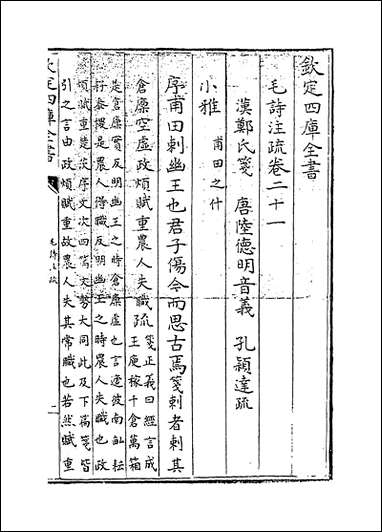 欽定四庫全書
毛詩注疏卷二十一
漢鄭氏箋　唐陸德明音義　孔穎達疏
小雅　甫田之什
序甫田刺幽王也君子傷今而思古焉箋刺者刺其
倉廩空虛政煩賦重農人失職疏箋正義曰經言成
王庾稼千倉萬箱
是倉廩實反明幽王之時倉廩虛也言適彼南畝耘
耔黍稷是農人得職反明幽王之時農人失職也政
煩賦重楚茨序文次四篇文勢大同此及下篇箋皆
引之言由政煩賦重故農人失其常職也若然賦重
欽定四庫全書
毛詩注疏
一